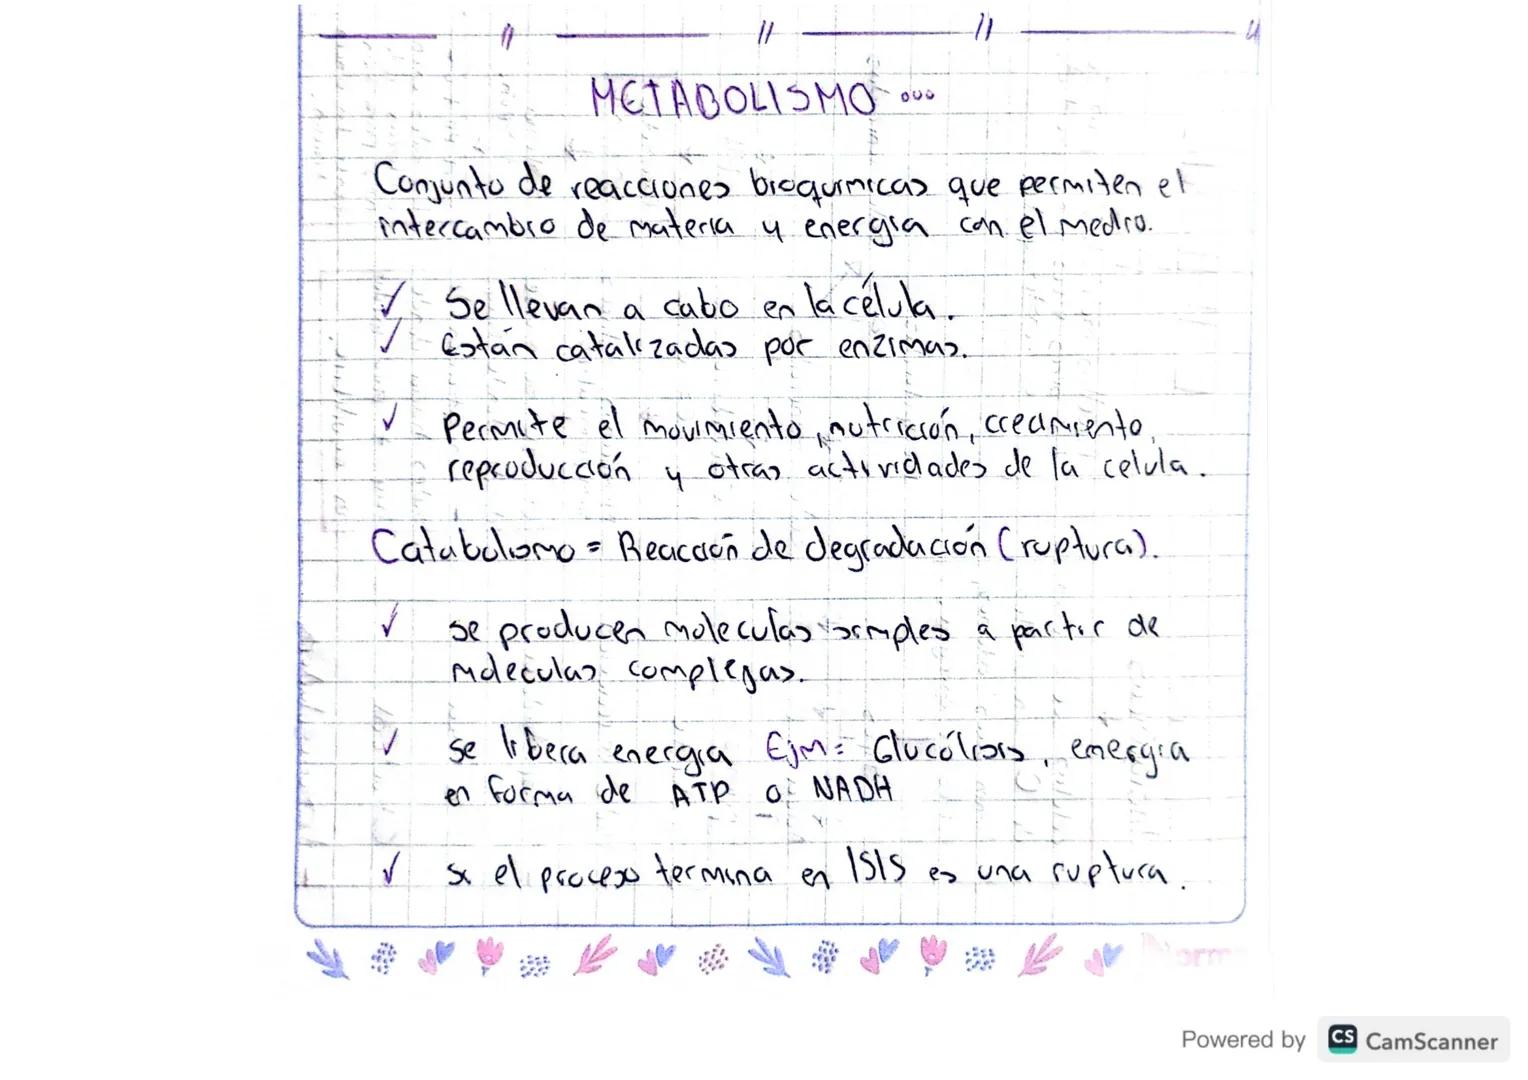 METABOLISMO ...
Conjunto de reacciones bioquimicas que permiten el
intercambio de materia y energia con el medio.
✓ Se llevan a cabo en la célula.
✓ Están catalizadas por enzimas.
✓ Permite el movimiento, nutrición, crecimiento,
reproducción y otras actividades de la celula.
Catabolismo = Reacción de degradación (ruptura).
✓ se producen moleculas simples a partir de
moleculas complejas.
✓ se libera energia Ejm= Glucólisis, energia
en forma de ATP o NADH
✓ si el proceso termina en ISIS es una ruptura.
Norma
Powered by CS CamScanner